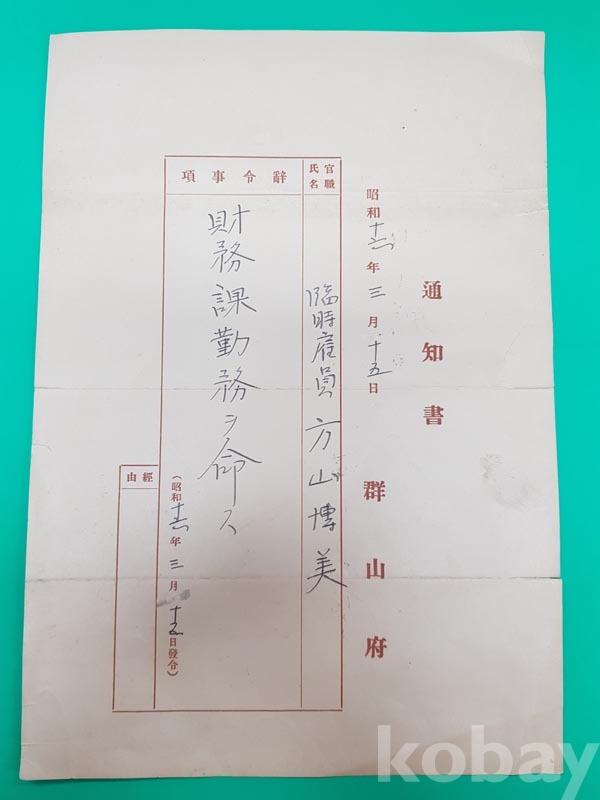 通知書
群山府
昭和十六年三月十五日
官職
氏名
臨時雇員 方山博美
辭令事項
財務課勤務ヲ命ス
(昭和十六年三月十五日發令)
經由
kobay